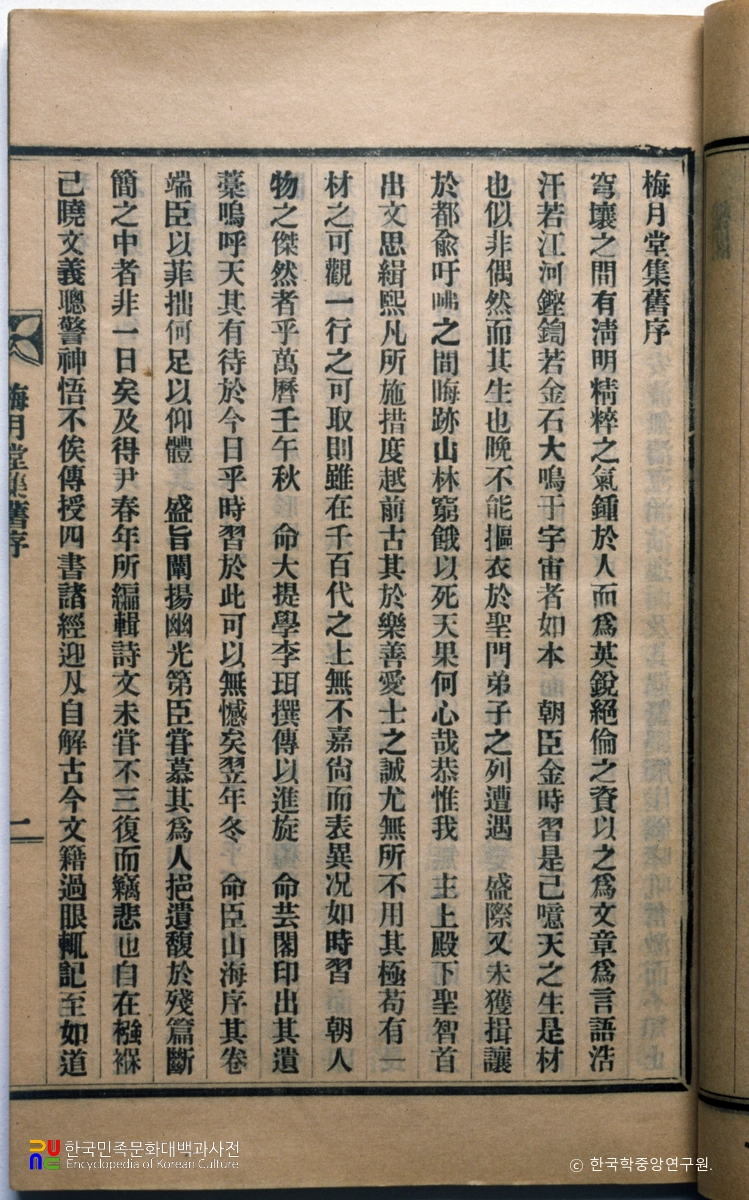 梅月堂集舊序
穹壤之間有淸明精粹之氣鍾於人而爲英銳絕倫之資以之爲文章爲言語浩
汗若江河鏗鍧若金石大鳴于宇宙者如本 朝臣金時習是已噫天之生是材
也似非偶然而其生也晩不能摳衣於聖門弟子之列遭遇 盛際又未獲揖讓
於都兪吁咈之間晦跡山林窮餓以死天果何心哉恭惟我 主上殿下聖智首
出文思緝熙凡所施措度越前古其於樂善愛士之誠尤無所不用其極苟有一
材之可觀一行之可取則雖在千百代之上無不嘉尙而表異况如時習 朝人
物之傑然者乎萬曆壬午秋 命大提學李珥撰傳以進旋 命芸閣印出其遺
藁嗚呼天其有待於今日乎時習於此可以無憾矣翌年冬 命臣山海序其卷
端臣以菲拙何足以仰體 盛旨闡揚幽光第臣甞慕其爲人挹遺馥於殘篇斷
簡之中者非一日矣及得尹春年所編輯詩文未甞不三復而竊悲也自在襁褓
己曉文義聰警神悟不俟傳授四書諸經迎刄自解古今文籍過眼輒記至如道
梅月堂集舊序
一
한국민족문화대백과사전
Encyclopedia of Korean Culture
ⓒ 한국학중앙연구원.